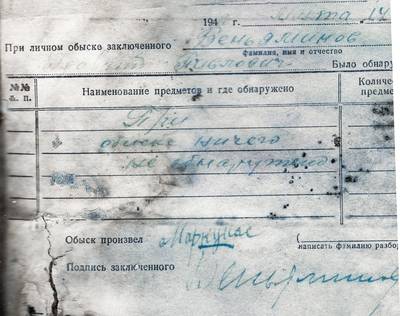 194 г. марта 14
При личном обыске заключенного Веньяминов
фамилия, имя и отчество
Павлович Было обнару
№№ п. п. Наименование предметов и где обнаружено Количе предме
При
обыске ничего
не обнаружено
Обыск произвел
(написать фамилию разбор
Подпись заключенного